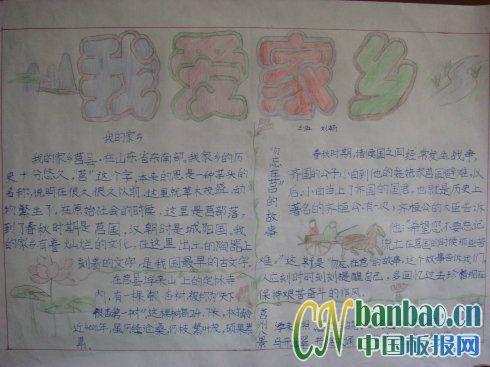 我爱家乡
我的家乡
我的家乡莒县,在山东省东南部,我家乡的历
史十分悠久,莒"这个字,本来的意思是一种草头的
名称,说明在很久很久以前,这里就草木茂盛,动
物繁生了,在原始社会的时候,这里是莒部落,
到了春秋时期是莒国,汉朝时是城阳国,我
的家乡有着灿烂的文化,在这里出土的陶器上
刻着的文字,是我国最早的古文字
在莒县浮来山上的定林寺
内,有一棵银杏树被称为"天下
银杏第一树"这棵树高
近4000年,虽历经沧桑,仍枝繁叶茂,硕果累
累
刘娇
勿忘在莒的故事
春秋时期,诸侯国之间经常发生战争,
齐国的公子小白到他的姥姥家莒国避难,以
后,小白当上了齐国的国君,也就是历史上
著名的齐桓公,有一次,齐桓公的大臣告诉
他:希望您不要忘记
逃亡在莒国的时候那些苦
难,"这,就是"勿忘在莒"的故事,这个故事告诉我们,
人应刻时时刻刻提醒自己,多回忆过去珍惜现在
保持艰苦奋斗的作风,
CN banbao.cn
中国板报网